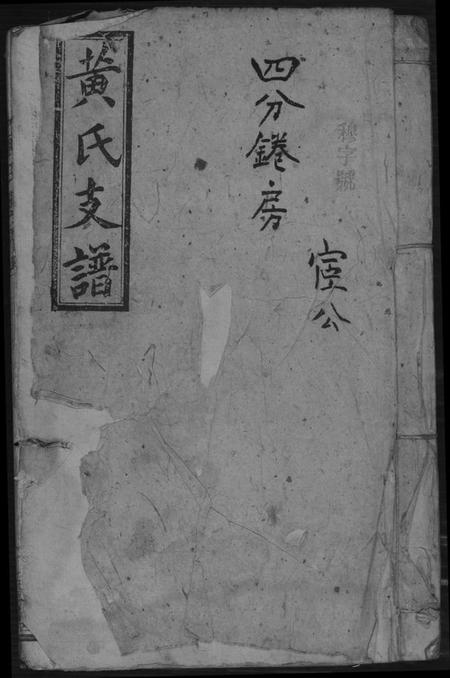 穆字號
四分錈房
宦公
黃氏支譜